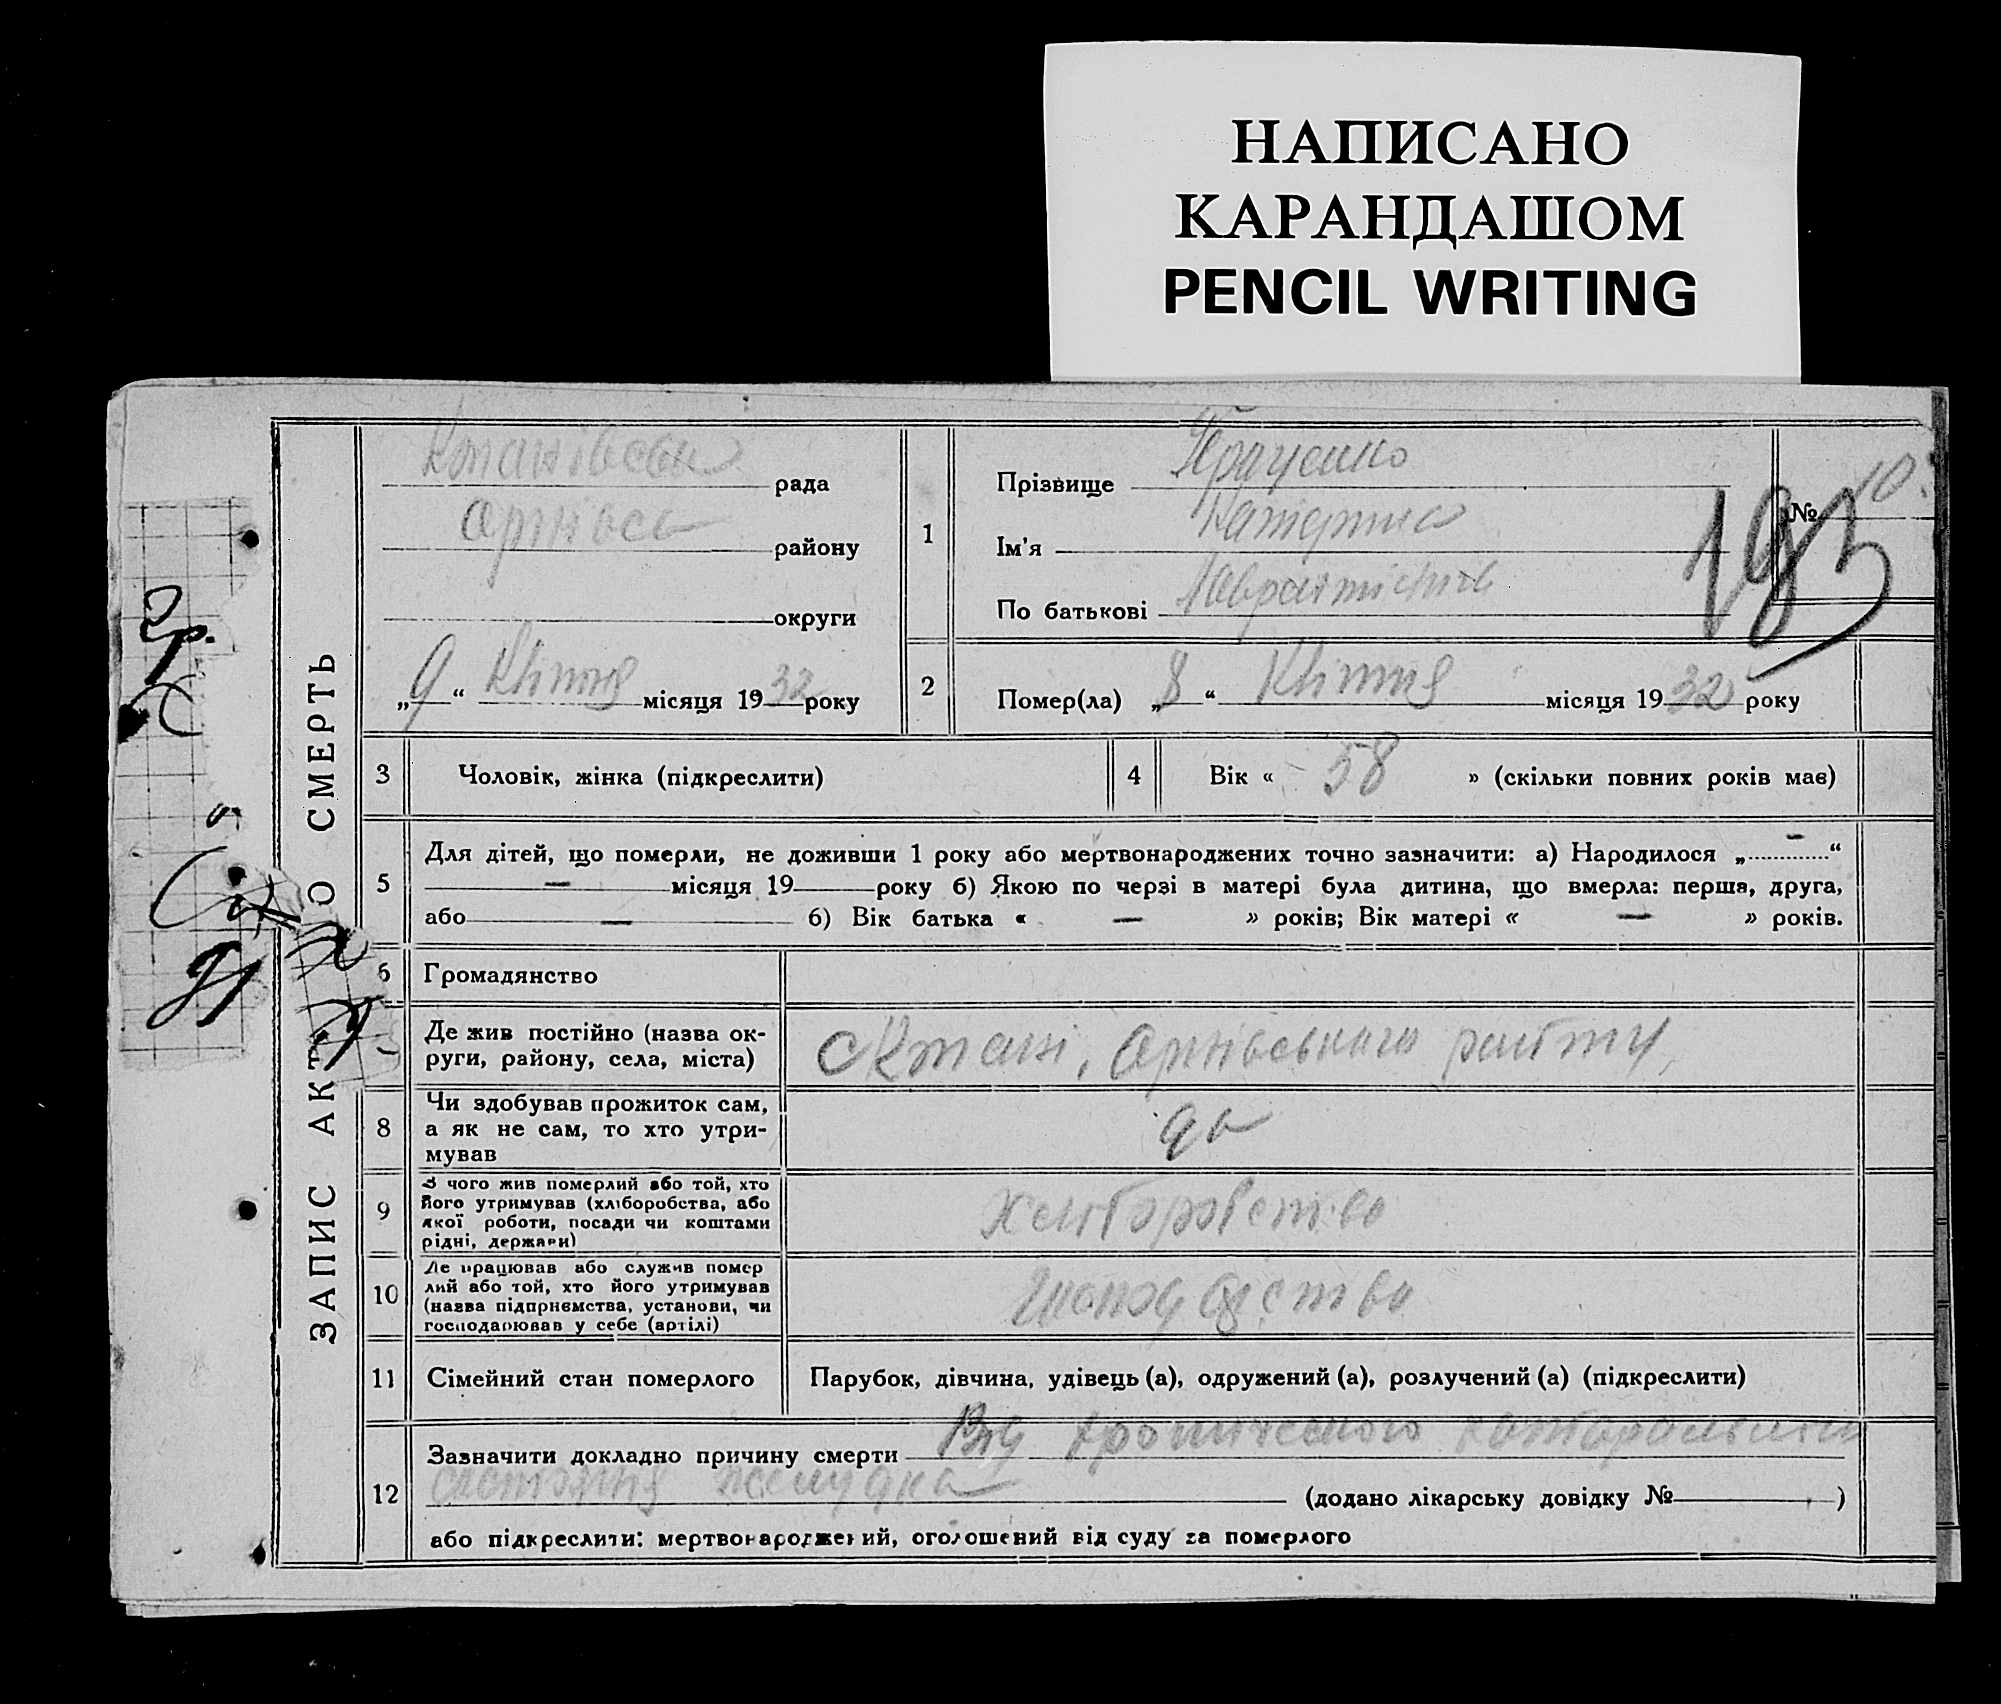 НАПИСАНО
КАРАНДАШОМ
PENCIL WRITING
ЗАПИС АКТ О СМЕРТЬ
рада
району
округи
„9“ Квітня місяця 1932 року
1
Прізвище
Ім'я Катерина
По батькові
№ 10
193
2
Помер(ла) „8“ Квітня місяця 1932 року
3
Чоловік, жінка (підкреслити)
4
Вік « 58 » (скільки повних років має)
5
Для дітей, що померли, не доживши 1 року або мертвонароджених точно зазначити: а) Народилося „—“
— місяця 19 року б) Якою по черзі в матері була дитина, що вмерла: перша, друга,
або — б) Вік батька « — » років; Вік матері « — » років.
6
Громадянство
Де жив постійно (назва ок-
руги, району, села, міста)
8
Чи здобував прожиток сам,
а як не сам, то хто утри-
мував
да
9
З чого жив померлий або той, хто
його утримував (хліборобства, або
якої роботи, посади чи коштами
рідні, держави)
хліборобство
10
Де працював або служив помер
лий або той, хто його утримував
(назва підприємства, установи, чи
господарював у себе (артілі)
11
Сімейний стан померлого
Парубок, дівчина, удівець (а), одружений (а), розлучений (а) (підкреслити)
12
Зазначити докладно причину смерти Від хронического
желудка (додано лікарську довідку № )
або підкреслити: мертвонароджений, оголошений від суду за померлого